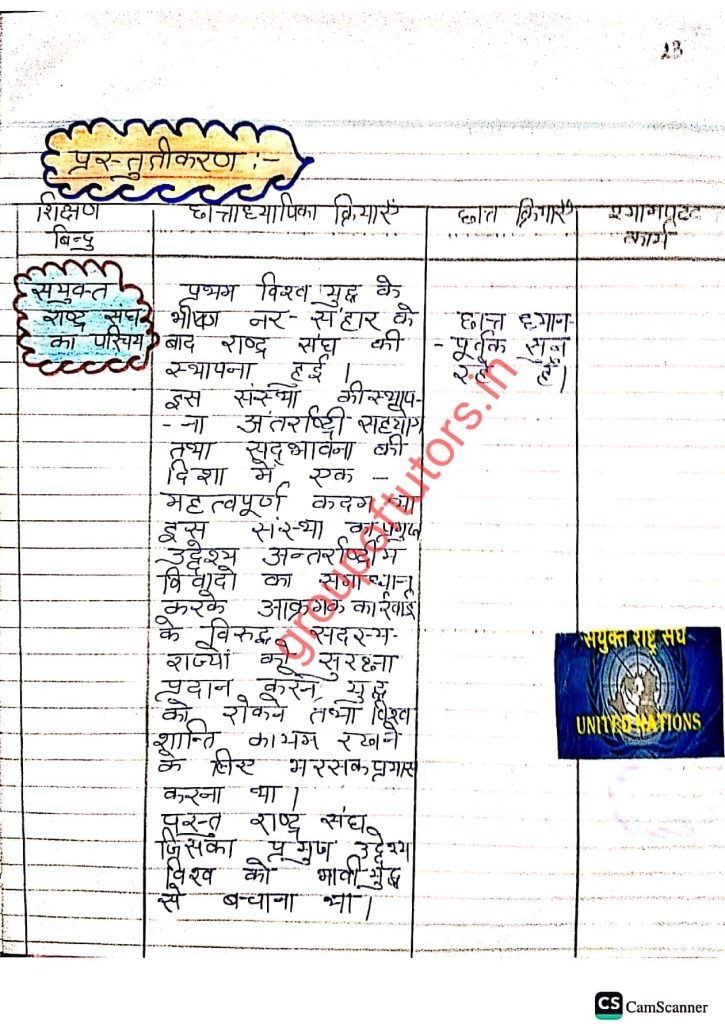 23
प्रस्तुतीकरण :-
शिक्षण
बिन्दु
छात्राध्यापिका क्रियाएँ
छात्र क्रियाएँ
श्यामपट्ट
कार्य
सयुक्त
राष्ट्र संघ
का परिचय
प्रथम विश्व युद्ध के
भीषण नर-संहार के
बाद राष्ट्र संघ की
स्थापना हुई ।
इस संस्था की स्थाप-
-ना अंतर्राष्ट्री सहयोग
तथा सद्भावना की
दिशा में एक -
महत्वपूर्ण कदम था
इस संस्था का प्रमुख
उद्देश्य अन्तर्राष्ट्रीय
विवादो का समाधान
करके आक्रमक कार्रवाई
के विरुद्ध सदस्य-
राज्यों को सुरक्षा
प्रदान करने, युद्ध
को रोकने तथा विश्व
शान्ति कायम रखने
के लिए भरसक प्रयास
करना था ।
परन्तु राष्ट्र संघ
जिसका प्रमुख उद्देश्य
विश्व को भावी युद्ध
से बचाना था ।
छात्र ध्यान-
-पूर्वक सुन
रहे हैं।
सयुक्त राष्ट्र संघ
UNITED NATIONS
groupoftutors.in
CS CamScanner